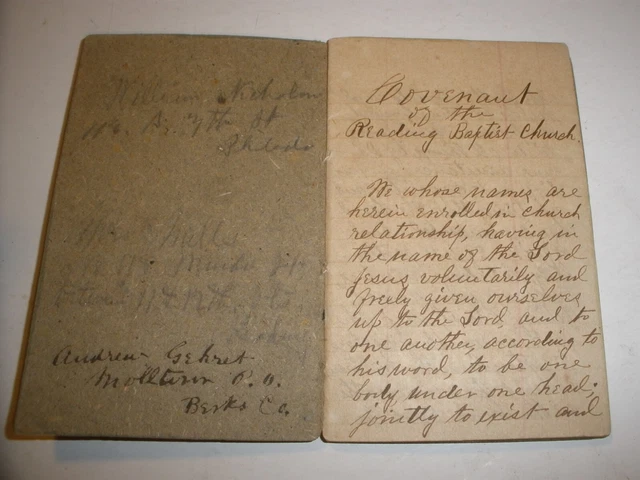 William Nicholson
St
Philada
Andrew Gehret
Molltown P. O.
Berks Co.
Covenant
of the
Reading Baptist Church.
We whose names are
herein enrolled in church
relationship, having in
the name of the Lord
Jesus voluntarily and
freely given ourselves
up to the Lord and to
one another, according to
his word, to be one
body, under one head;
jointly to exist and